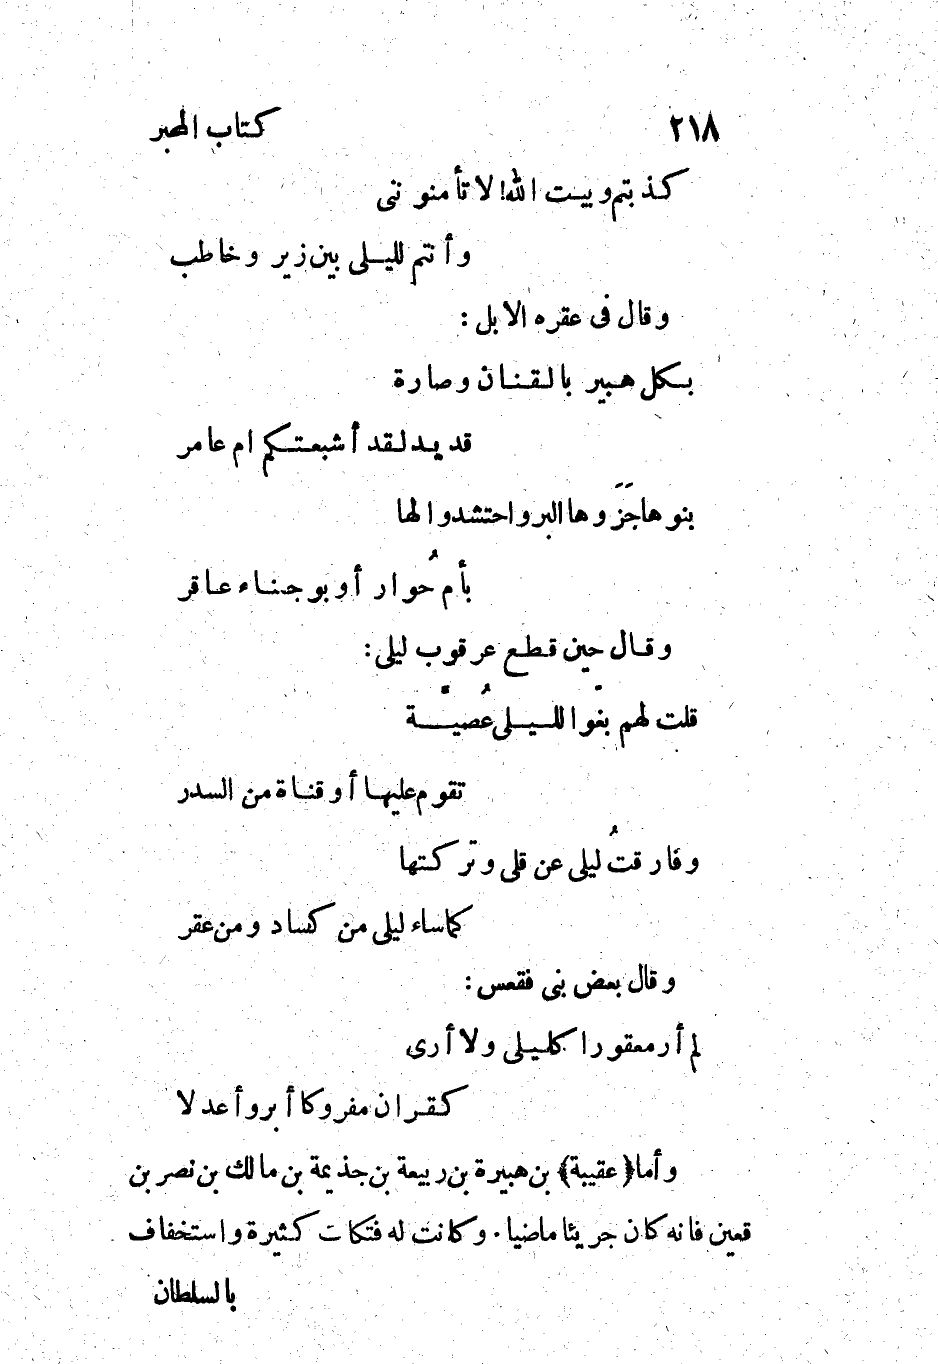 ٢١٨ كتاب المحبر
كذبتم وبيت الله! لا تأمنوننى
وأنتم لليلى بين زير وخاطب
وقال فى عقره الابل:
بكل هبير بالقنان وصارة
قديد لقد أشبعتكم ام عامر
بنوها جَزَوها البر واحتشدوا لها
بأم حُوار أو بوجناء عاقر
وقال حين قطع عرقوب ليلى:
قلت لهم بغّوا لليلى عُصيّة
تقوم عليها أو قناة من السدر
وفارقتُ ليلى عن قلى وتركتها
كما ساء ليلى من كساد ومن عقر
وقال بعض بنى فقعس:
لم أر معقورا كليلى ولا أرى
كقران مفروكا أبر وأعدلا
وأما (عقيبة) بن هبيرة بن ربيعة بن جذيمة بن مالك بن نصر بن
قعين فانه كان جريئا ماضيا. وكانت له فتكات كثيرة واستخفاف
بالسلطان